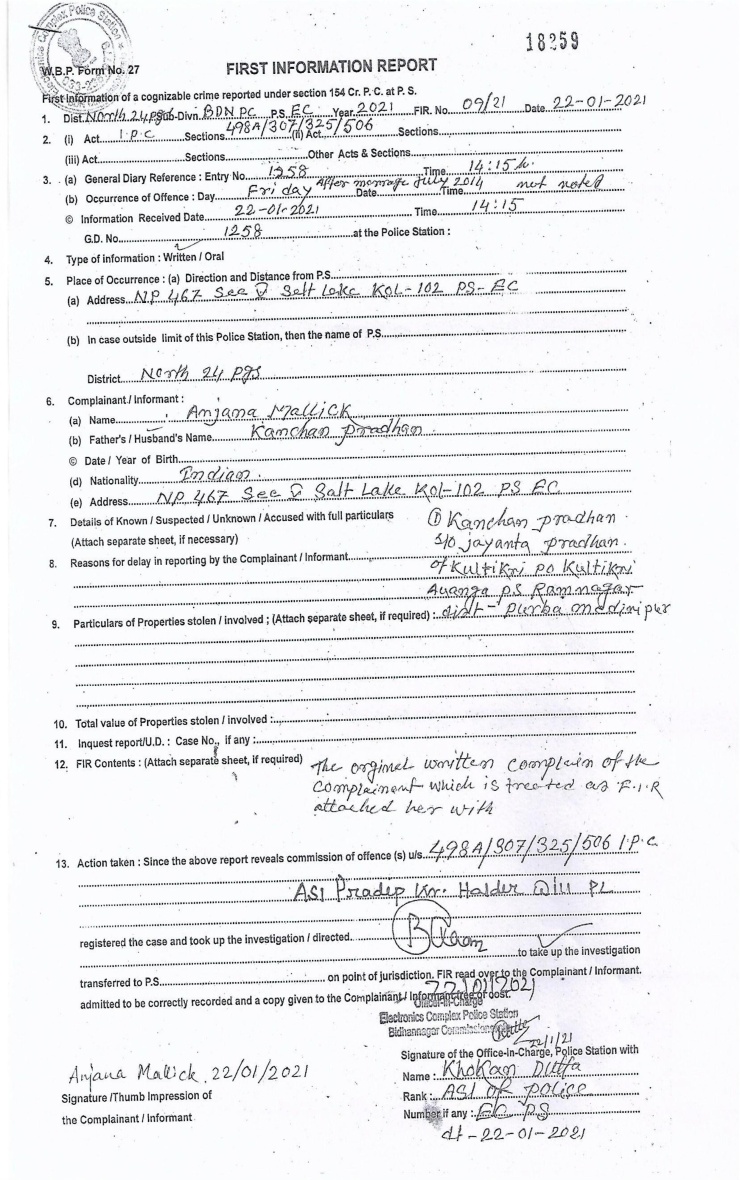 18259
W.B.P. Form No. 27
FIRST INFORMATION REPORT
First Information of a cognizable crime reported under section 154 Cr. P. C. at P. S.
1. Dist. North 24 pgs Sub-Divn. BDN PC P.S. EC Year 2021 FIR. No. 09/21 Date 22-01-2021
2. (i) Act I.P.C Sections 498A/307/325/506 (ii) Act Sections
(iii) Act Sections Other Acts & Sections
3. (a) General Diary Reference : Entry No. 1258 Time 14:15 h.
(b) Occurrence of Offence : Day Friday After merrage July 2014 Date Time not noted
© Information Received Date 22-01-2021 Time 14:15
G.D. No. 1258 at the Police Station :
4. Type of information : Written / Oral
5. Place of Occurrence : (a) Direction and Distance from P.S.
(a) Address NP 467 Sec V Salt Lake KOL-102 PS-EC
(b) In case outside limit of this Police Station, then the name of P.S.
District North 24 pgs
6. Complainant / Informant :
(a) Name Anjana Mallick
(b) Father's / Husband's Name Kanchan Pradhan
© Date / Year of Birth
(d) Nationality Indian.
(e) Address NP 467 Sec V Salt Lake Kol-102 PS EC
7. Details of Known / Suspected / Unknown / Accused with full particulars ① Kanchan pradhan
(Attach separate sheet, if necessary) S/o jayanta pradhan.
8. Reasons for delay in reporting by the Complainant / Informant of Kultikri po Kultikri
Auanga ps Ramnagar
9. Particulars of Properties stolen / involved ; (Attach separate sheet, if required) : dist- purba medinipur
10. Total value of Properties stolen / involved :
11. Inquest report/U.D. : Case No., if any :
12. FIR Contents : (Attach separate sheet, if required) The orginel written complain of the
complainent which is treeted as F.I.R
attached her with
13. Action taken : Since the above report reveals commission of offence (s) u/s. 498A/307/325/506 I.P.C
ASI Pradip Kr. Halder will PL
registered the case and took up the investigation / directed.
to take up the investigation
transferred to P.S. on point of jurisdiction. FIR read over to the Complainant / Informant.
22/01/2021
admitted to be correctly recorded and a copy given to the Complainant / Informant free of cost.
Officer-In-Charge
Electronics Complex Police Station
Bidhannagar Commissionerate
22/1/21
Signature of the Office-In-Charge, Police Station with
Anjana Mallick. 22/01/2021
Name : Khokan Dutta
Signature /Thumb Impression of
Rank : ASI of police
the Complainant / Informant
Number if any : EC PS
dt - 22-01-2021